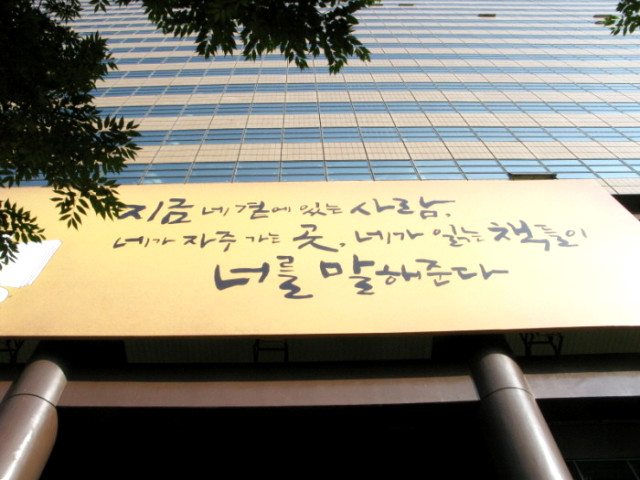 지금 네 곁에 있는 사람,
네가 자주 가는 곳, 네가 읽는 책들이
너를 말해준다